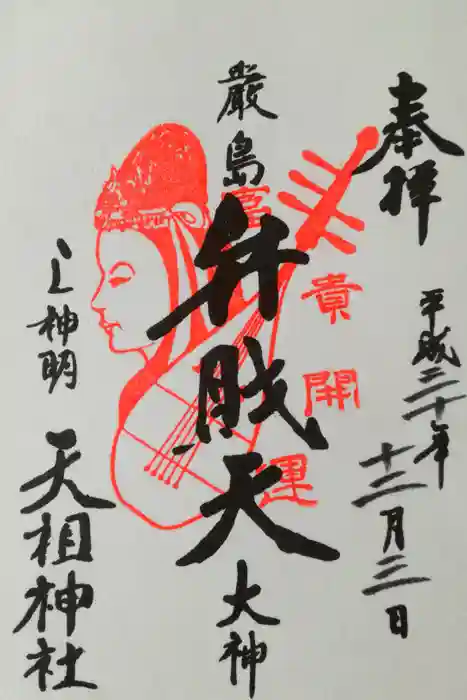 奉拝
平成三十年
十二月三日
厳島
弁財天
大神
富貴開運
上神明
天祖神社